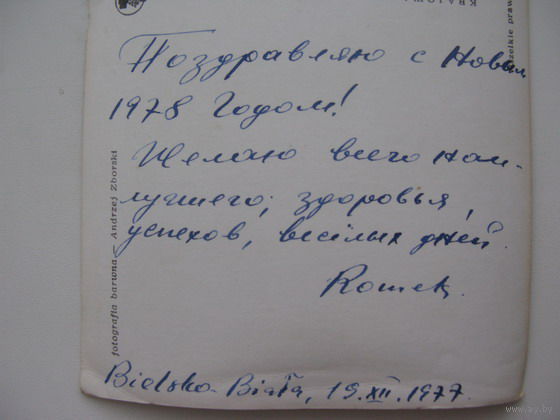 Поздравляю с Новым
1978 Годом!
Желаю всего наи-
лучшего, здоровья,
успехов, весёлых дней.
Romek.
Bielsko-Biała, 19.XII.1977.
fotografia barwna — Andrzej Zborski
KRAJOWA
wszelkie praw
www.ay.by